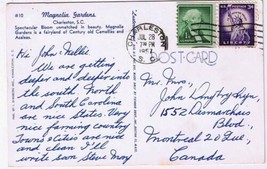 #10
Magnolia Gardens,
Charleston, S.C.
Spectacular Bloom unmatched in beauty. Magnolia
Gardens is a fairyland of Century old Camellias and
Azaleas.
CHARLESTON
JUL 28
PM
1957
S.C.
LIBERTY
POST CARD
Hi John Nellie
We are getting
deeper and deeper into
the south. North
and South Carolina
are nice States. Very
nice farming country
Towns & Cities are nice
and clean. I'll
write soon Steve May
Mr. Mrs.
John
1552
Blvd.,
Montreal 20 Que
Canada